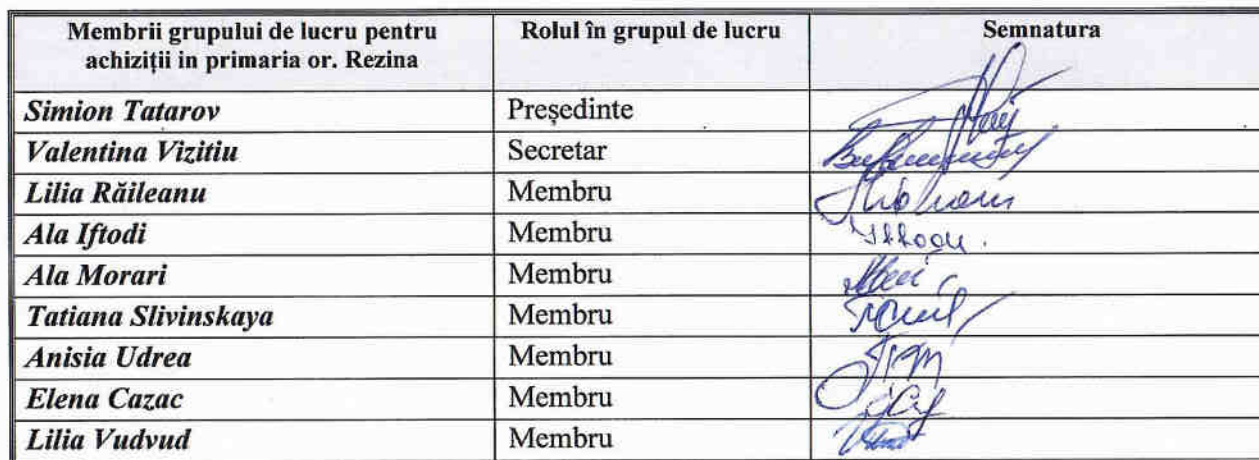 Membrii grupului de lucru pentru
achiziții in primaria or. Rezina
Rolul în grupul de lucru
Semnatura
Simion Tatarov Președinte
Valentina Vizitiu Secretar
Lilia Răileanu Membru
Ala Iftodi Membru
Ala Morari Membru
Tatiana Slivinskaya Membru
Anisia Udrea Membru
Elena Cazac Membru
Lilia Vudvud Membru